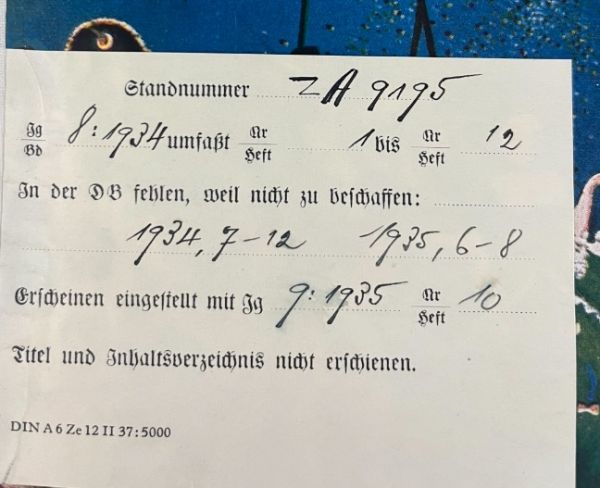 Standnummer ZA 9195
Jg/Bd 8: 1934 umfaßt Nr/Heft 1 bis Nr/Heft 12
In der DB fehlen, weil nicht zu beschaffen:
1934, 7-12 1935, 6-8
Erscheinen eingestellt mit Jg 9: 1935 Nr/Heft 10
Titel und Inhaltsverzeichnis nicht erschienen.
DIN A 6 Ze 12 II 37: 5000